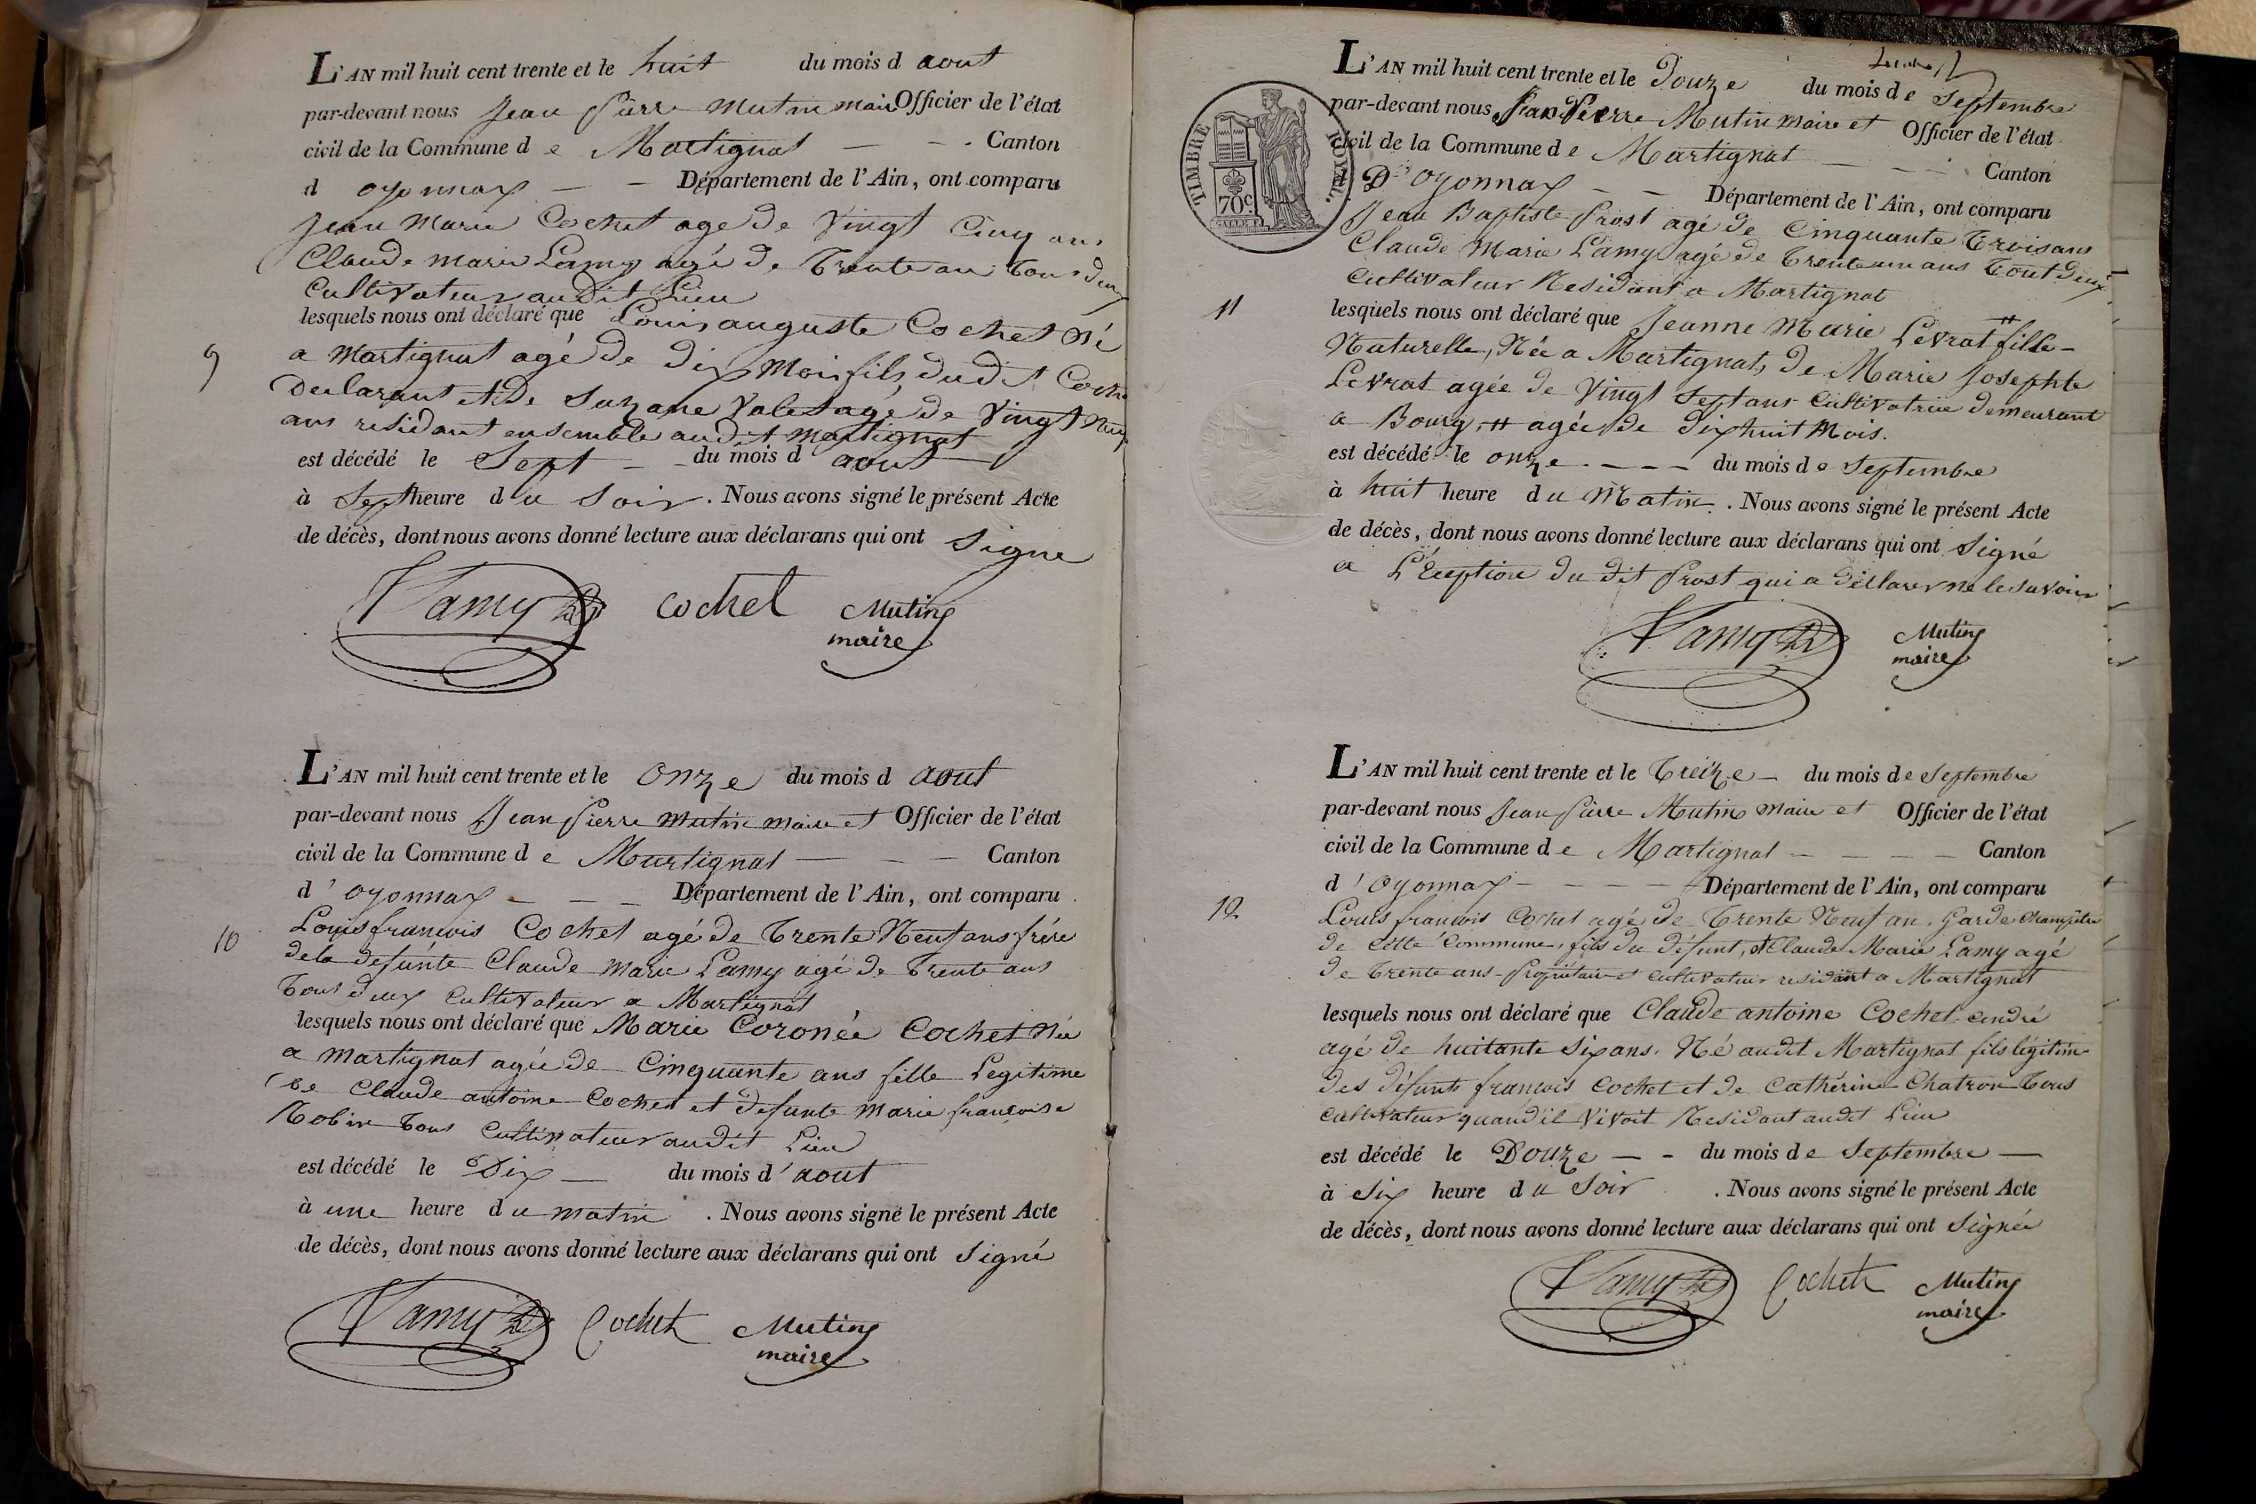 L'AN mil huit cent trente et le huit du mois d aout
par-devant nous Jean Pierre Mutin maire Officier de l'état
civil de la Commune d e Martignat — - . Canton
d oyonnax — — Département de l'Ain, ont comparu
Jean Marie Cochet age de Vingt Cinq ans
Claude marie Lamy agé de Trente an Tous deux
Cultivateur audit Lieu
lesquels nous ont déclaré que Louis auguste Cochet Né
9
a Martignat agé de dix Mois fils dudit Cochet
declarant et de Suzane Valet agé de Vingt Neuf
ans residant ensemble audit Martignat
est décédé le Sept — - du mois d aout
à Sept heure d u Soir . Nous avons signé le présent Acte
de décès, dont nous avons donné lecture aux déclarans qui ont Signé
Lamy Cochet Mutin
maire
L'AN mil huit cent trente et le onze du mois d aout
par-devant nous Jean Pierre Mutin maire et Officier de l'état
civil de la Commune d e Martignat — - — Canton
d 'oyonnax - — — Département de l'Ain, ont comparu
10
Louis francois Cochet agé de Trente Neuf ans frére
dela defúnte Claude Marie Lamy agé de Trente ans
Tous deux Cultivateur a Martignat
lesquels nous ont déclaré que Marie Coronée Cochet Née
a Martignat agée de Cinquante ans fille Legitime
de Claude antoine Cochet et defunte Marie françoise
Robin Tous Cultivateur audit Lieu
est décédé le Dix — du mois d' aout
à une heure d u matin . Nous avons signé le présent Acte
de décès, dont nous avons donné lecture aux déclarans qui ont Signé
Lamy Cochet Mutin
maire
TIMBRE ROYAL
70c.
L'AN mil huit cent trente et le Douze du mois d e Septembre
par-devant nous Jean Pierre Mutin Maire et Officier de l'état
civil de la Commune d e Martignat — - - Canton
D'oyonnax - — Département de l'Ain, ont comparu
Jean Baptiste Prost agé de Cinquante Trois ans
Claude Marie Lamy agé de Trente un ans Tout deux
Cultivateur Residant a Martignat
11
lesquels nous ont déclaré que Jeanne Marie Levrat # fille
Naturelle, Née a Martignat, de Marie Josephte
Levrat agée de Vingt Sept ans Cultivatrice demeurant
a Bourg, # agée de dixhuit Mois.
est décédé le onze . — — — du mois d e Septembre
à huit heure d u Matin . Nous avons signé le présent Acte
de décès, dont nous avons donné lecture aux déclarans qui ont Signé
a L'Exeption du dit Prost qui a déclarer ne le savoir
Lamy Mutin
maire
L'AN mil huit cent trente et le Treize — du mois d e Septembre
par-devant nous Jean Pierre Mutin Maire et Officier de l'état
civil de la Commune d e Martignat — — — — Canton
d 'oyonnax - — — — Département de l'Ain, ont comparu
12
Louis francois Cochet agé de Trente Neuf an. Garde Champêtre
de cette Commune, fils du défunt, et Claude Marie Lamy agé
de Trente ans - Propriétaire et Cultivateur residant a Martignat
lesquels nous ont déclaré que Claude antoine Cochet
agé de huitante Six ans. Né audit Martignat fils légitime
des défunts françois Cochet et de Cathérine Chatron Tous
Cultivateur quand il Vivoit Residant audit Lieu
est décédé le Douze — - du mois d e Septembre —
à Six heure d u Soir . Nous avons signé le présent Acte
de décès, dont nous avons donné lecture aux déclarans qui ont Signé
Lamy Cochet Mutin
maire